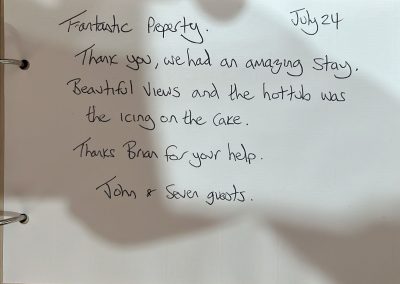 Fantastic Property. July 24
Thank you, we had an amazing stay.
Beautiful views and the hottub was
the icing on the cake.
Thanks Brian for your help.
John & Seven guests.